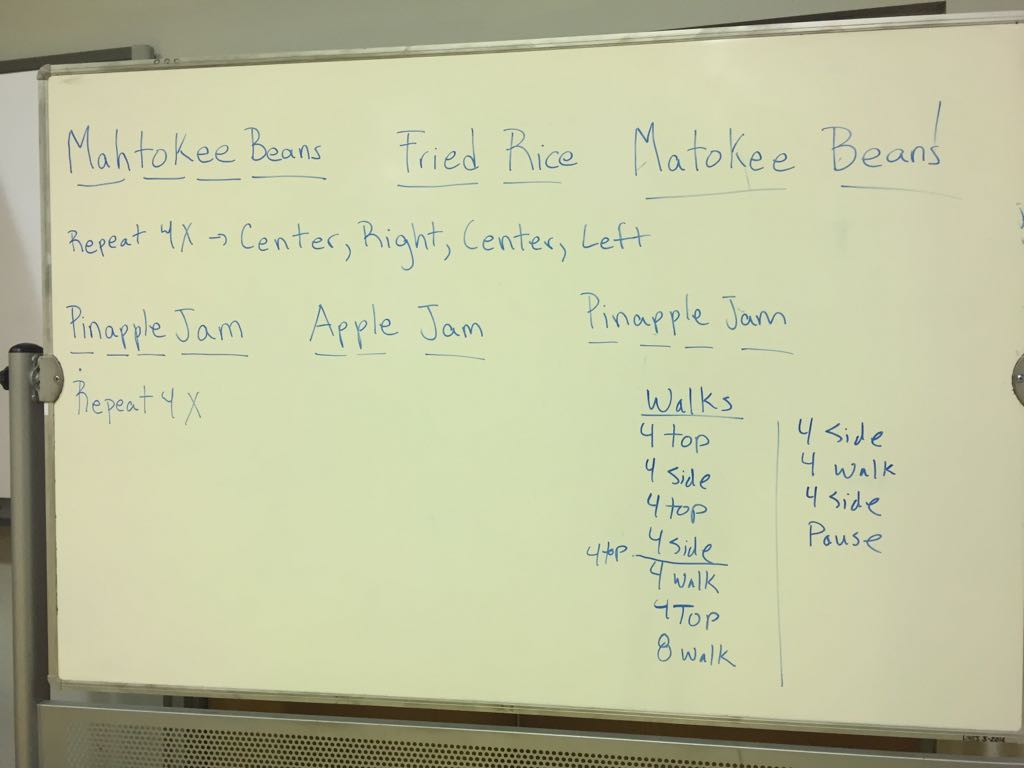 Mahtokee Beans Fried Rice Matokee Beans!
Repeat 4X → Center, Right, Center, Left
Pinapple Jam Apple Jam Pinapple Jam
Repeat 4X
Walks
4 top
4 side
4 top
4 side
4 top
4 walk
4 Top
8 walk
4 side
4 walk
4 side
Pause